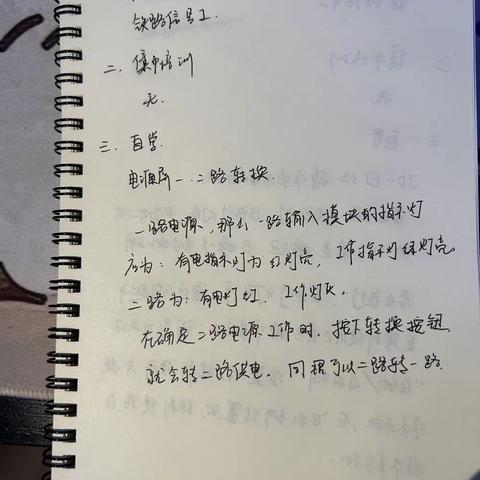 铁路信号工.
二、集中培训
无.
三、自学.
电源屏一、二路转换.
一路电源, 那么一路输入模块的指示灯
应为: 有电指示灯为红灯亮, 工作指示灯绿灯亮.
二路为: 有电灯红, 工作灯灭.
在确定二路电源工作时, 按下转换按钮,
就会转二路供电. 同理可以二路转一路.